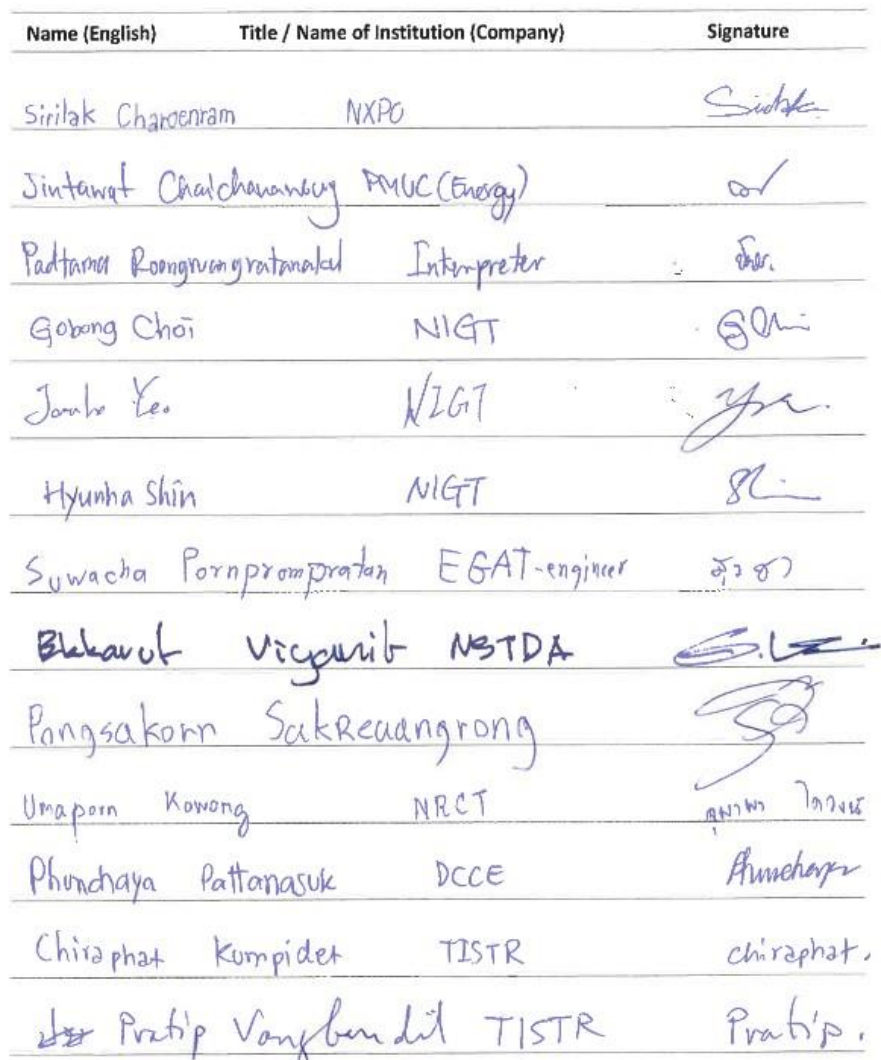 Name (English) Title / Name of Institution (Company) Signature
Sirilak Charoenram NXPO
Jintawat Chaichanawong PMUC (Energy)
Padtama Roongruangratanakul Interpreter
Gobong Choi NIGT
Yeo NIGT
Hyunha Shin NIGT Shin
Suwacha Pornprompratan EGAT-engineer สุวชา
NSTDA
Pongsakorn Sakreuangrong
Umaporn Kowong NRCT
Phunchaya Pattanasuk DCCE Phunchaya
Chiraphat Kumpidet TISTR chiraphat.
Pratip Vongbandit TISTR Pratip.